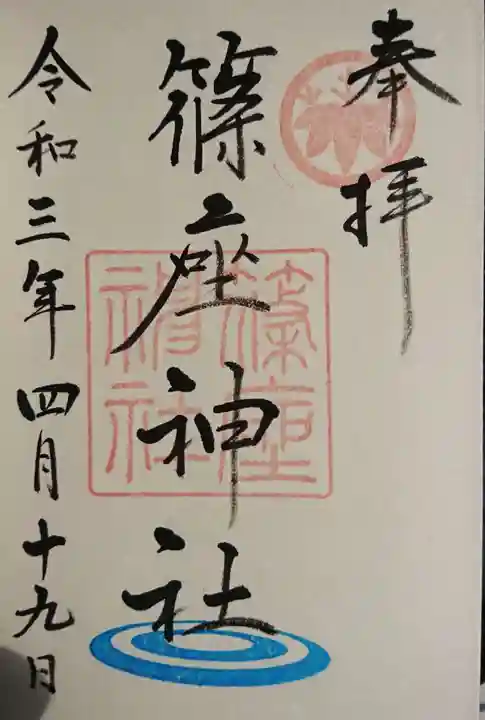 奉拝
篠座神社
篠座神社
令和三年四月十九日